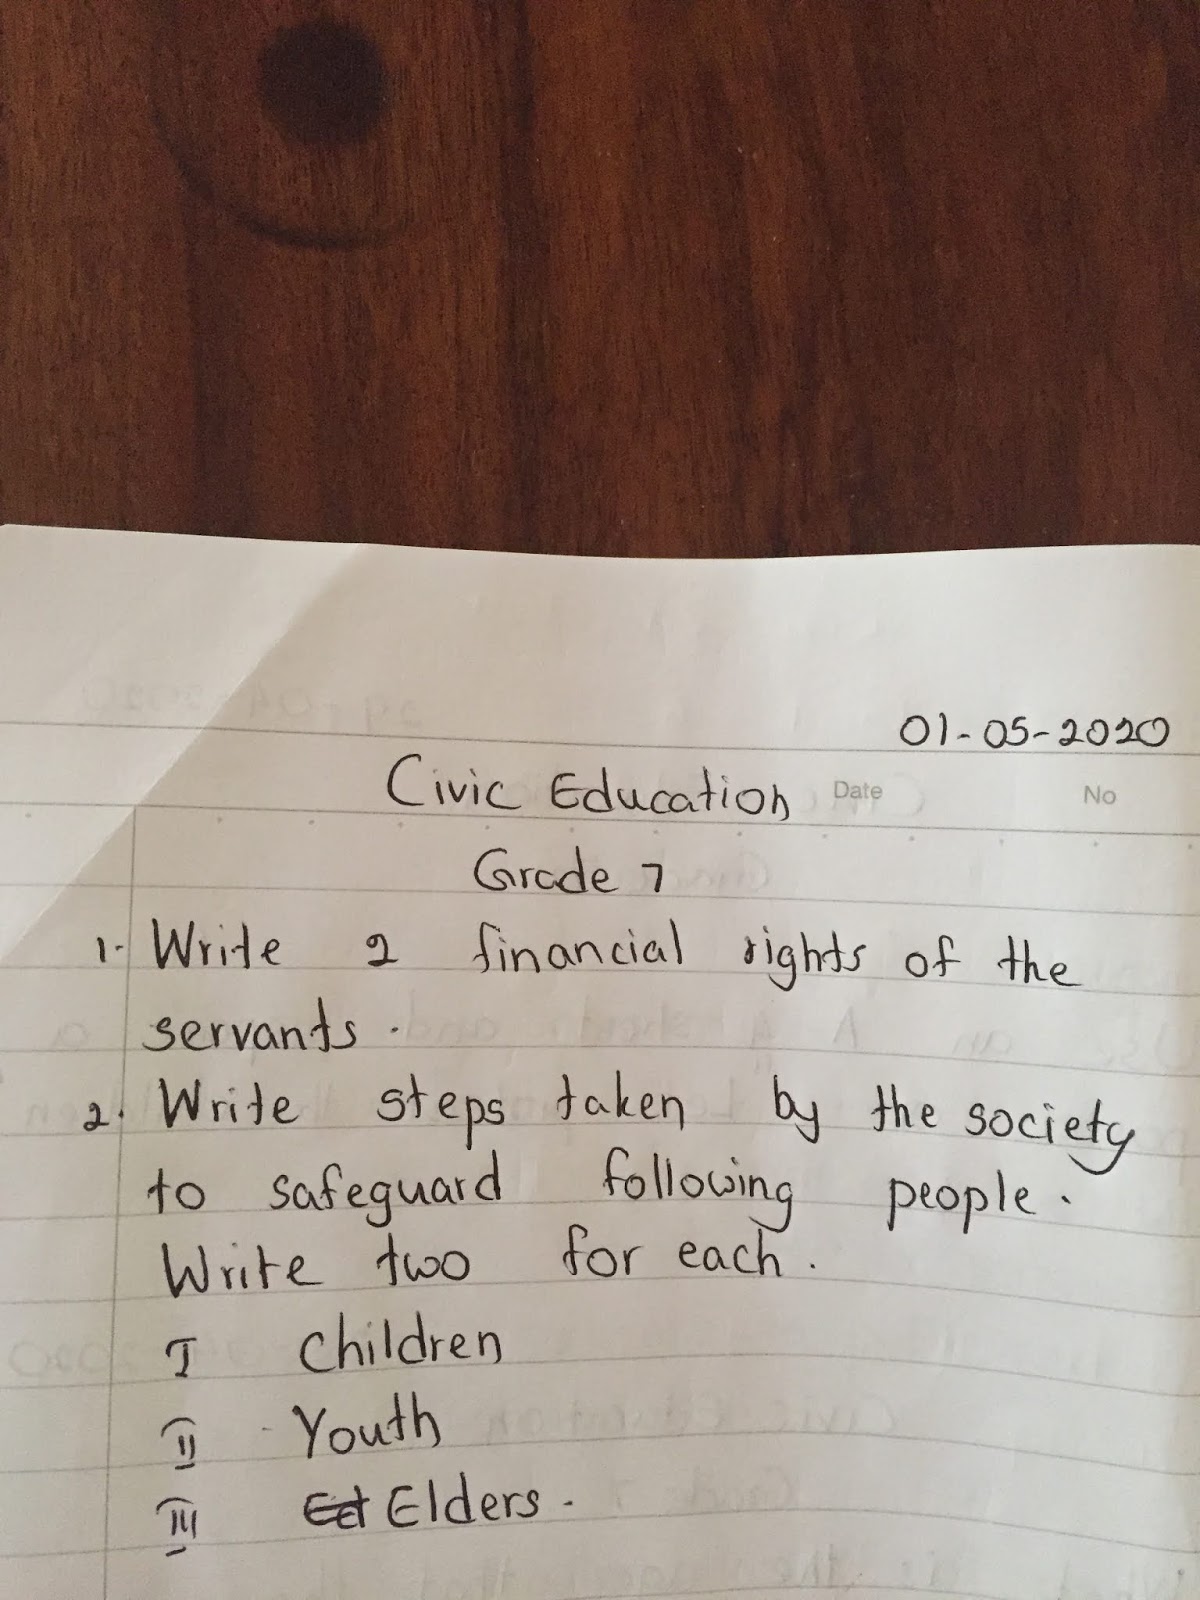 01-05-2020
Civic Education Date No
Grade 7
1. Write 2 financial rights of the
servants.
2. Write steps taken by the society
to safeguard following people.
Write two for each.
I Children
II Youth
III Elders.